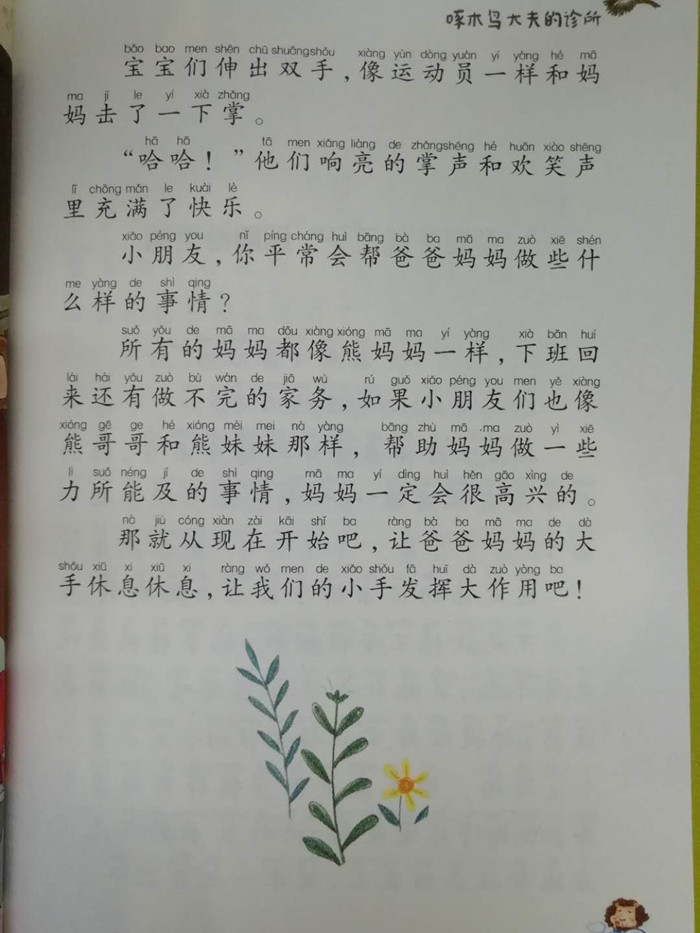 啄木鸟大夫的诊所
bǎo bao men shēn chū shuāngshǒu xiàng yùn dòng yuán yí yàng hé mā
宝宝们伸出双手，像运动员一样和妈
ma jī le yí xià zhǎng
妈击了一下掌。
hā hā tā men xiǎng liàng de zhǎngshēng hé huān xiào shēng
“哈哈！”他们响亮的掌声和欢笑声
lǐ chōng mǎn le kuài lè
里充满了快乐。
xiǎo péng you nǐ píng cháng huì bāng bà ba mā ma zuò xiē shén
小朋友，你平常会帮爸爸妈妈做些什
me yàng de shì qing
么样的事情？
suǒ yǒu de mā ma dōu xiàng xióng mā ma yí yàng xià bān huí
所有的妈妈都像熊妈妈一样，下班回
lái hái yǒu zuò bù wán de jiā wù rú guǒ xiǎo péng you men yě xiàng
来还有做不完的家务，如果小朋友们也像
xióng gē ge hé xióng mèi mei nà yàng bāng zhù mā ma zuò yì xiē
熊哥哥和熊妹妹那样，帮助妈妈做一些
lì suǒ néng jí de shì qing mā ma yí dìng huì hěn gāo xìng de
力所能及的事情，妈妈一定会很高兴的。
nà jiù cóng xiàn zài kāi shǐ ba ràng bà ba mā ma de dà
那就从现在开始吧，让爸爸妈妈的大
shǒu xiū xi xiū xi ràng wǒ men de xiǎo shǒu fā huī dà zuò yòng ba
手休息休息，让我们的小手发挥大作用吧！